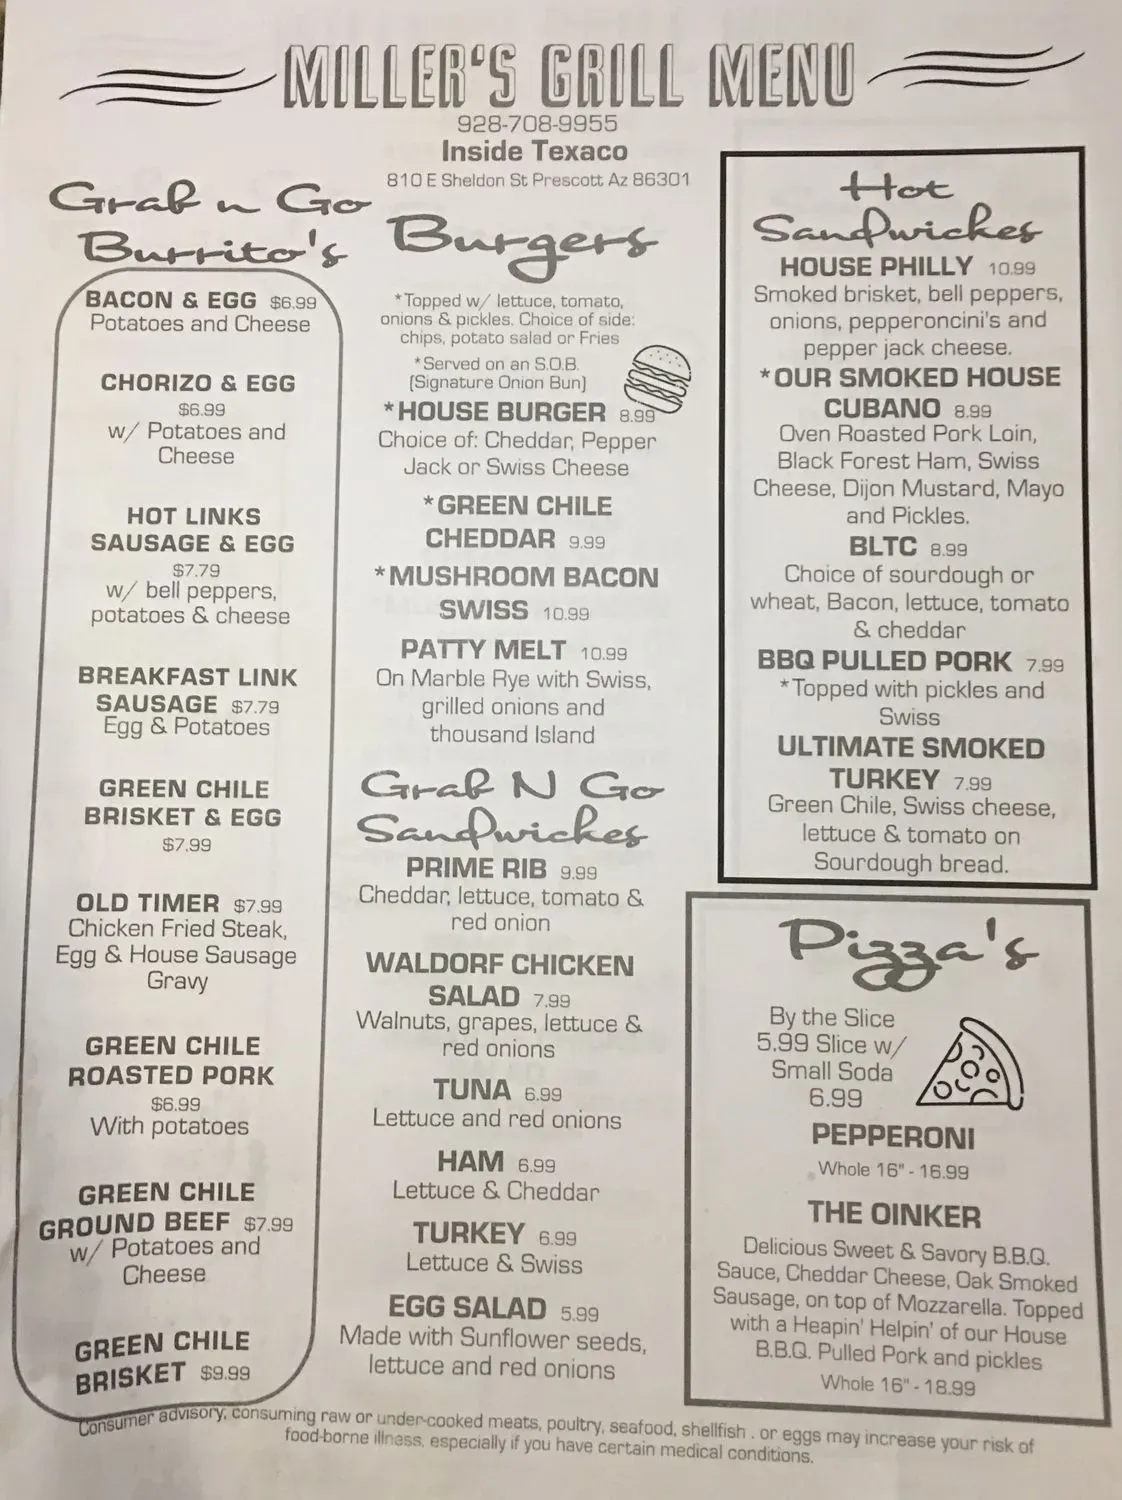 MILLER'S GRILL MENU
928-708-9955
Inside Texaco
810 E Sheldon St Prescott Az 86301
Grab n Go
Burrito's
BACON & EGG $6.99
Potatoes and Cheese
CHORIZO & EGG
$6.99
w/ Potatoes and
Cheese
HOT LINKS
SAUSAGE & EGG
$7.79
w/ bell peppers,
potatoes & cheese
BREAKFAST LINK
SAUSAGE $7.79
Egg & Potatoes
GREEN CHILE
BRISKET & EGG
$7.99
OLD TIMER $7.99
Chicken Fried Steak,
Egg & House Sausage
Gravy
GREEN CHILE
ROASTED PORK
$6.99
With potatoes
GREEN CHILE
GROUND BEEF $7.99
w/ Potatoes and
Cheese
GREEN CHILE
BRISKET $9.99
Burgers
*Topped w/ lettuce, tomato,
onions & pickles. Choice of side:
chips, potato salad or Fries
*Served on an S.O.B.
(Signature Onion Bun)
*HOUSE BURGER 8.99
Choice of: Cheddar, Pepper
Jack or Swiss Cheese
*GREEN CHILE
CHEDDAR 9.99
*MUSHROOM BACON
SWISS 10.99
PATTY MELT 10.99
On Marble Rye with Swiss,
grilled onions and
thousand Island
Grab N Go
Sandwiches
PRIME RIB 9.99
Cheddar, lettuce, tomato &
red onion
WALDORF CHICKEN
SALAD 7.99
Walnuts, grapes, lettuce &
red onions
TUNA 6.99
Lettuce and red onions
HAM 6.99
Lettuce & Cheddar
TURKEY 6.99
Lettuce & Swiss
EGG SALAD 5.99
Made with Sunflower seeds,
lettuce and red onions
Hot
Sandwiches
HOUSE PHILLY 10.99
Smoked brisket, bell peppers,
onions, pepperoncini's and
pepper jack cheese.
*OUR SMOKED HOUSE
CUBANO 8.99
Oven Roasted Pork Loin,
Black Forest Ham, Swiss
Cheese, Dijon Mustard, Mayo
and Pickles.
BLTC 8.99
Choice of sourdough or
wheat, Bacon, lettuce, tomato
& cheddar
BBQ PULLED PORK 7.99
*Topped with pickles and
Swiss
ULTIMATE SMOKED
TURKEY 7.99
Green Chile, Swiss cheese,
lettuce & tomato on
Sourdough bread.
Pizza's
By the Slice
5.99 Slice w/
Small Soda
6.99
PEPPERONI
Whole 16" - 16.99
THE OINKER
Delicious Sweet & Savory B.B.Q.
Sauce, Cheddar Cheese, Oak Smoked
Sausage, on top of Mozzarella. Topped
with a Heapin' Helpin' of our House
B.B.Q. Pulled Pork and pickles
Whole 16" - 18.99
Consumer advisory, consuming raw or under-cooked meats, poultry, seafood, shellfish . or eggs may increase your risk of
food-borne illness, especially if you have certain medical conditions.